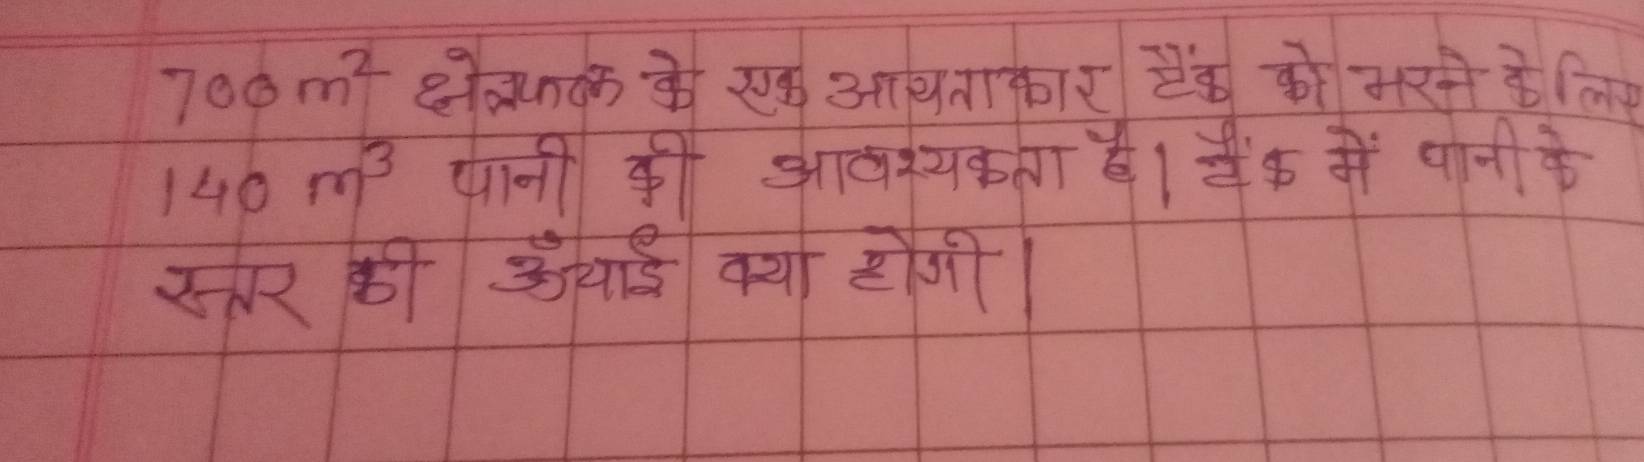 700 m² क्षेत्रफल के एक आयताकार टैंक को भरने के लिए
140 m³ पानी की आवश्यकता है। टैंक में पानी के
स्तर की ऊँचाई क्या होगी।